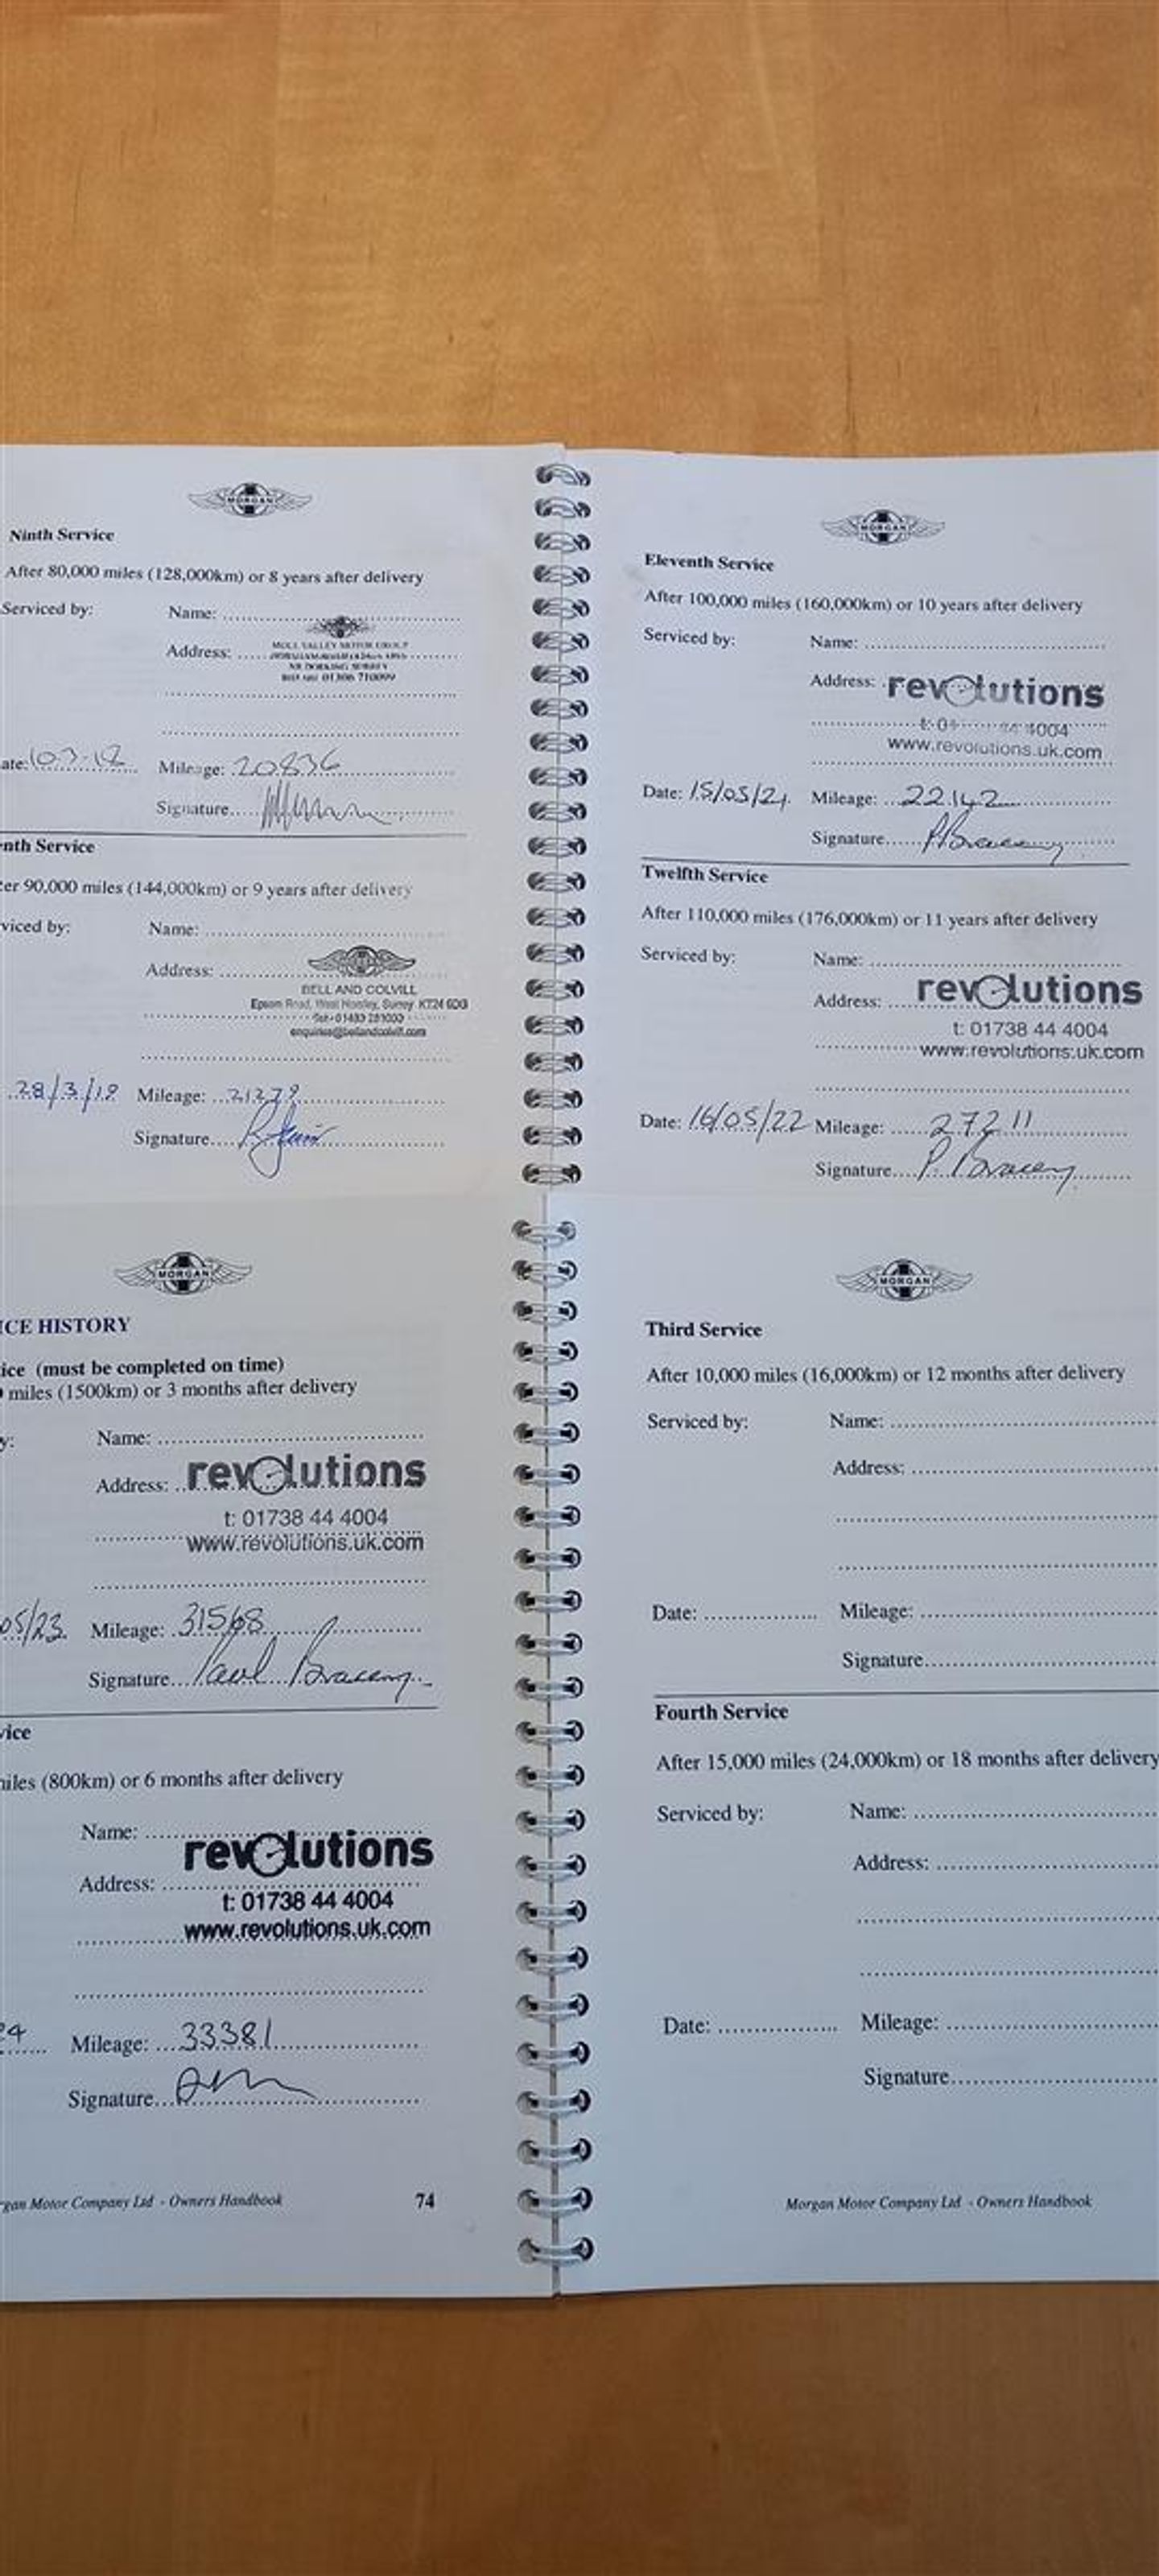 MORGAN
Ninth Service
After 80,000 miles (128,000km) or 8 years after delivery
Serviced by: Name:
Address:
MOLE VALLEY MOTOR GROUP
NR DORKING SURREY
01306 710099
ate: 10-3-18 Mileage: 20836
Signature
nth Service
er 90,000 miles (144,000km) or 9 years after delivery
viced by: Name:
Address:
BELL AND COLVILL
Epsom Road, West Horsley, Surrey KT24 6DG
enquiries@bellandcolvill.com
28/3/19 Mileage: 21279
Signature
MORGAN
Eleventh Service
After 100,000 miles (160,000km) or 10 years after delivery
Serviced by: Name:
Address: revolutions
4004
www.revolutions.uk.com
Date: 15/05/21 Mileage: 22142
Signature P Bracey
Twelfth Service
After 110,000 miles (176,000km) or 11 years after delivery
Serviced by: Name:
Address: revolutions
t: 01738 44 4004
www.revolutions.uk.com
Date: 16/05/22 Mileage: 27211
Signature P. Bracey
MORGAN
ICE HISTORY
ice (must be completed on time)
miles (1500km) or 3 months after delivery
y: Name:
Address: revolutions
t: 01738 44 4004
www.revolutions.uk.com
05/23 Mileage: 31568
Signature Paul Bracey
vice
miles (800km) or 6 months after delivery
Name:
revolutions
Address:
t: 01738 44 4004
www.revolutions.uk.com
24 Mileage: 33381
Signature
rgan Motor Company Ltd - Owners Handbook 74
MORGAN
Third Service
After 10,000 miles (16,000km) or 12 months after delivery
Serviced by: Name:
Address:
Date: Mileage:
Signature
Fourth Service
After 15,000 miles (24,000km) or 18 months after delivery
Serviced by: Name:
Address:
Date: Mileage:
Signature
Morgan Motor Company Ltd - Owners Handbook